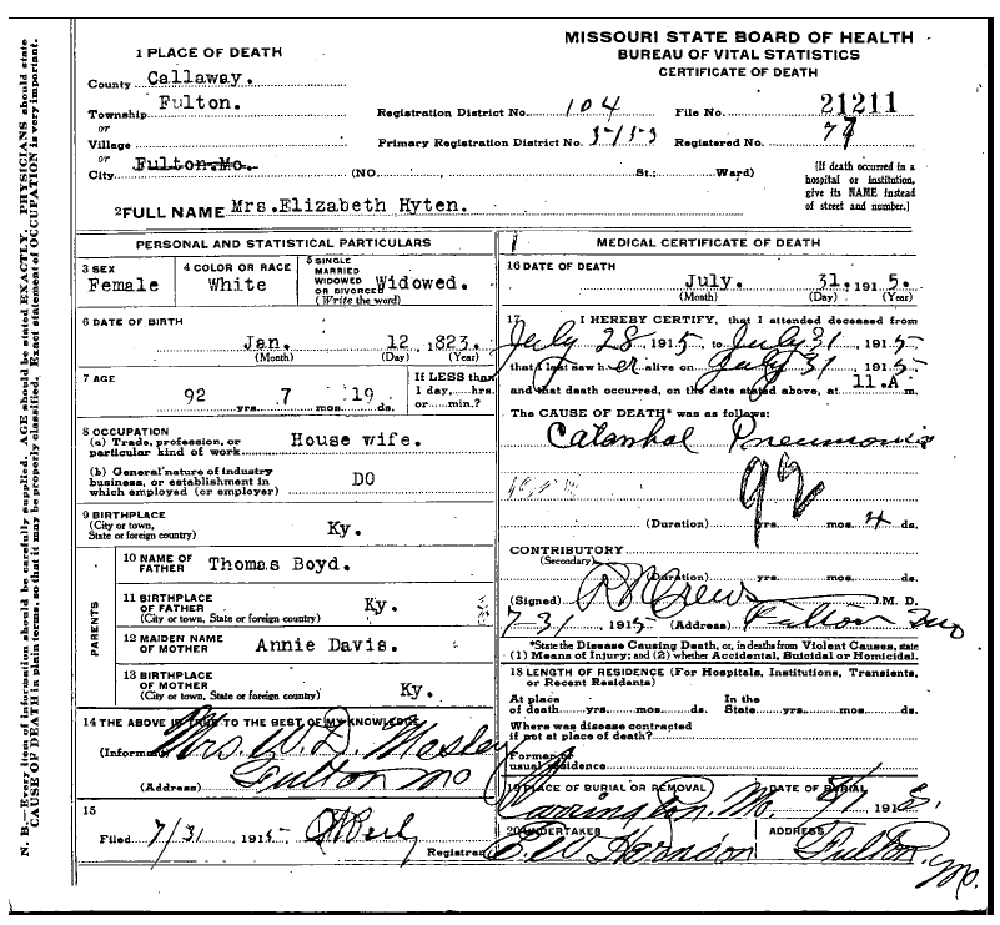 N. B.—Every item of information should be carefully supplied. AGE should be stated EXACTLY. PHYSICIANS should state
CAUSE OF DEATH in plain terms, so that it may be properly classified. Exact statement of OCCUPATION is very important.
MISSOURI STATE BOARD OF HEALTH
BUREAU OF VITAL STATISTICS
CERTIFICATE OF DEATH
1 PLACE OF DEATH
County Callaway.
Township Fulton.
or
Village
or
City Fulton.Mo.
Registration District No. 104
File No. 21211
Primary Registration District No.
Registered No. 77
(NO. St.; Ward)
[If death occurred in a
hospital or institution,
give its NAME instead
of street and number.]
2 FULL NAME Mrs.Elizabeth Hyten.
PERSONAL AND STATISTICAL PARTICULARS
3 SEX
Female
4 COLOR OR RACE
White
5 SINGLE
MARRIED
WIDOWED
OR DIVORCED
(Write the word)
Widowed.
6 DATE OF BIRTH
Jan. 12 1823.
(Month) (Day) (Year)
7 AGE
92 yrs. 7 mos. 19 ds.
If LESS than
1 day, hrs.
or min.?
8 OCCUPATION
(a) Trade, profession, or
particular kind of work House wife.
(b) General nature of industry
business, or establishment in
which employed (or employer) DO
9 BIRTHPLACE
(City or town,
State or foreign country) Ky.
PARENTS
10 NAME OF
FATHER Thomas Boyd.
11 BIRTHPLACE
OF FATHER
(City or town, State or foreign country) Ky.
12 MAIDEN NAME
OF MOTHER Annie Davis.
13 BIRTHPLACE
OF MOTHER
(City or town, State or foreign country) Ky.
14 THE ABOVE IS TRUE TO THE BEST OF MY KNOWLEDGE
(Informant) Mrs. W.D. Mosley
(Address) Fulton Mo
15
Filed 7/31, 1915
Registrar
MEDICAL CERTIFICATE OF DEATH
16 DATE OF DEATH
July. 31, 1915.
(Month) (Day) (Year)
17 I HEREBY CERTIFY, that I attended deceased from
July 28, 1915 to July 31, 1915
that I last saw her alive on July 31 1915
and that death occurred, on the date stated above, at 11.A. m.
The CAUSE OF DEATH* was as follows:
Catarrhal Pneumonia
92
(Duration) yrs. mos. 4 ds.
CONTRIBUTORY
(Secondary)
(Duration) yrs. mos. ds.
(Signed) RN Crews M. D.
7-31, 1915 (Address) Fulton Mo
*State the Disease Causing Death, or, in deaths from Violent Causes, state
(1) Means of Injury; and (2) whether Accidental, Suicidal or Homicidal.
18 LENGTH OF RESIDENCE (For Hospitals, Institutions, Transients,
or Recent Residents)
At place
of death yrs. mos. ds.
In the
State yrs. mos. ds.
Where was disease contracted
if not at place of death?
Former or
usual residence
19 PLACE OF BURIAL OR REMOVAL
Carrington, Mo.
DATE OF BURIAL
8/1 1915.
20 UNDERTAKER
E.W Herndon
ADDRESS
Fulton, Mo.